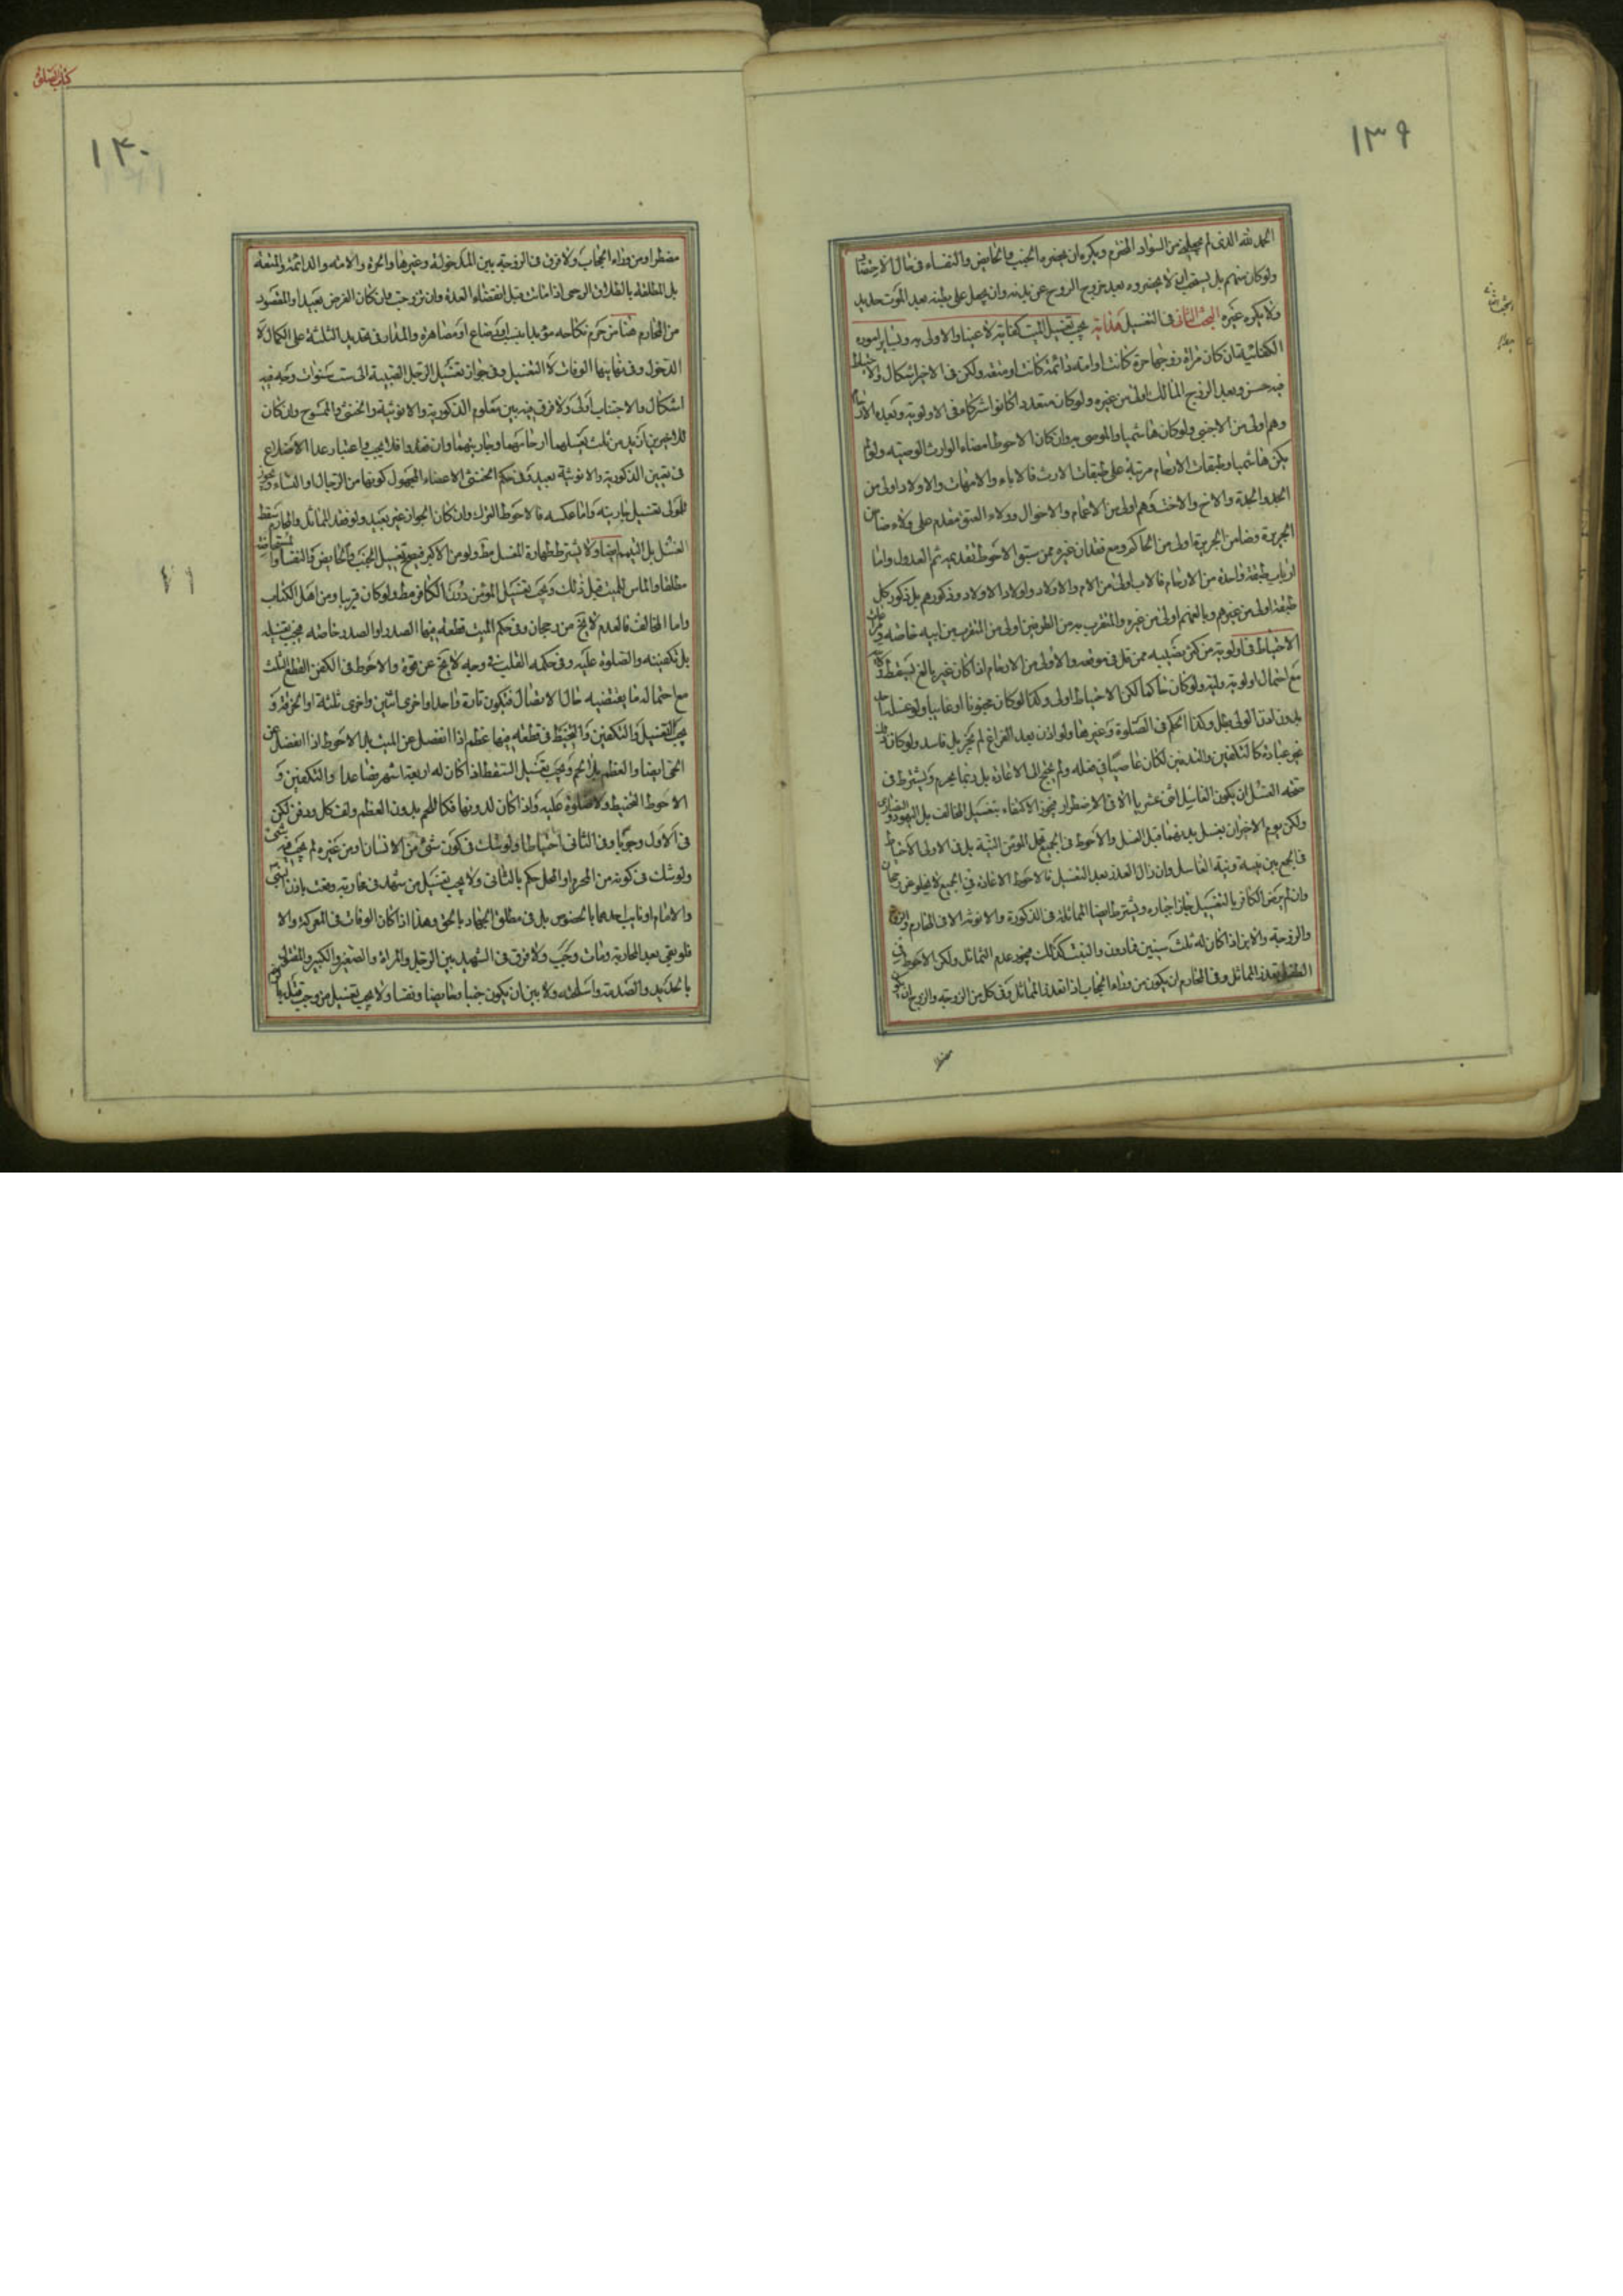 ١٣٩
الحمد لله الذى لم يجعلنى من السواد المخترم ويكره ان يحضره الجنب والحايض والنفساء فى حال الاحتضار
ولوكان منهم بل يستحب ان لا يحضروه بعد خروج الروح عن بدنه وان يجعل على بطنه بعد الموت حديد
ولا يكره غيره البحث الثانى فى التغسيل يجب تغسيل الميت كفاية لا عينا والاولى به وبساير اموره
الكفائية ان كان مراة زوجها حرة كانت او امة دائمة كانت او منقطعة ولكن فى الاخير اشكال والاحتياط
فيه حسن وبعد الزوج المالك اولى من غيره ولوكان متعددا كانوا شركاء فى الاولوية وبعده الارحام
وهم اولى من الاجنبى ولوكان هاشميا والموصى به وان كان الاحوط امضاء الوارث الوصية ولو لم
يكن هاشميا وطبقات الارحام مرتبة على طبقات الارث فالاباء والامهات والاولاد اولى من
الجد والجدة والاخ والاخت وهم اولى من الاعمام والاخوال وولاء العتق مقدم على ولاء ضامن
الجريرة وضامن الجريرة اولى من الحاكم ومع فقدان غيره ممن سبق الاحوط تقديمه ثم العدول واما
ارباب طبقة واحدة من الارحام فالاب اولى من الام والاولاد واولاد الاولاد وذكورهم بل ذكور كل
طبقة اولى من غيرهم وبالعم اولى من غيره والمتقرب به من الطرفين اولى من المتقرب من ابيه خاصة
الاحتياط فى اولوية من كثر نصيبه ممن قل فى موقعه والاولى من الارحام اذا كان غير بالغ يسقط
مع احتمال اولوية وليه ولوكان حاكما لكن الاحتياط اولى وكذا لوكان مجنونا او غايبا ولو غسله
بدون اذن الولى بطل وكذا الحكم فى الصلوة وغيرها ولو اذن بعد الفراغ لم يجز بل فاسد ولوكان
غير عبادة كالتكفين والتدفين لكان عاصيا فى فعله ولم يحتج الى الاعادة بل ربما يحرم ويشترط فى
صحة الغسل ان يكون الغاسل اثنى عشريا الا فى الاضطرار فيجوز الاكتفاء بتغسيل المخالف بل اليهود والنصارى
ولكن يؤمر الاخيران بغسل بدنهما قبل الغسل والاحوط فى الجميع تحمل المؤمن النية بل فى الاولى الاحتياط
فى الجمع بين نيته ونية الغاسل وان زال العذر بعد التغسيل فالاحوط الاعادة فى الجميع لا يخلو من رجحان
وان لم يرض الكافر بالتغسيل جاز اجباره ويشترط ايضا المماثلة فى الذكورة والانوثة الا فى المحارم والزوج
والزوجة والابن اذا كان له ثلث سنين فما دون والبنت كذلك فيجوز عدم التماثل ولكن الاحوط فى
الطفل تعذر المماثل وفى المحارم ان يكون من وراء الحجاب اذا تعذر المماثل وفى كل من الزوجة والزوج ان يكون
كتاب الصلوة
١۴٠
مضطرا ومن وراء الحجاب ولا فرق فى الزوجة بين المدخولة وغيرها والحرة والامة والدائمة والمتعة
بل المطلقة بالطلاق الرجعى اذا ماتت قبل انقضاء العدة وان تزوجت وان كان الفرض بعيدا والمقصود
من المحارم هنا من حرم نكاحه مؤبدا بنسب او رضاع او مصاهرة والمدار فى تحديد الثلثة على الكمال لا
الدخول وفى نهايتها الوفات لا التغسيل وفى جواز تغسيل الرجل الصبية الى ست سنوات وجه فيه
اشكال والاجتناب اولى ولا فرق فيه بين معلوم الذكورية والانوثية والخنثى والممسوح وان كان
للاخيرين ازيد من ثلث يغسلهما ارحامهما وجاريتهما وان فقدوا فلا يجب واعتبار عدا الاضلاع
فى تعيين الذكورية والانوثية بعيد وفى حكم الخنثى الاعضاء المجهول كونها من الرجال او النساء ويجوز
للمولى تغسيل جاريته واما عكسه فالاحوط الترك وان كان الجواز غير بعيد ولو فقد المماثل والمحارم سقط
الغسل بل التيمم ايضا ولا يشترط طهارة المغسل مط ولو من الاكبر فيصح تغسيل الجنب والحايض والنفساء والمستحاضة
مطلقا والماس للميت قبل ذلك ويجب تغسيل المؤمن دون الكافر مط ولوكان قريبا ومن اهل الكتاب
واما المخالف فالعدم لا يخ من رجحان وفى حكم الميت قطعة فيها الصدر او الصدر خاصة فيجب تغسيله
بل تكفينه والصلوة عليه وفى حكمه القلب فى وجه لا يخ عن قوة والاحوط فى الكفن القطع الثلث
مع احتمال ما يقتضيه حال الاتصال فتكون تارة واحدا واخرى اثنين واخرى ثلثة او الخرقة و
يجب التغسيل والتكفين والتحنيط فى قطعة فيها عظم اذا انفصل عن الميت بل الاحوط اذا انفصل من
الحى ايضا والعظم بلا لحم ويجب تغسيل السقط اذا كان له اربعة اشهر فصاعدا والتكفين و
الاحوط التحنيط ولا صلوة عليه واذا كان لدونها فكاللحم بدون العظم ولف كل ودفن لكن
فى الاول وجوبا وفى الثانى احتياطا ولو شك فى كون شئ من الانسان او من غيره لم يجب فيه شئ
ولو شك فى كونه من المحرم او المحل حكم بالثانى ولا يجب تغسيل من شهد فى محاربة وقعت باذن النبى
والامام او نايب احدهما بالخصوص بل فى مطلق الجهاد بالحق وهذا اذا كان الوفات فى المعركة والا
فلو بقى بعد المحاربة ومات وجب ولا فرق فى الشهيد بين الرجل والمراة والصغير والكبير والمقتول
بالحديد والصدمة واسلحته ولا بين ان يكون جنبا وحايضا ونفساء ولا يجب تغسيل من وجب قتله